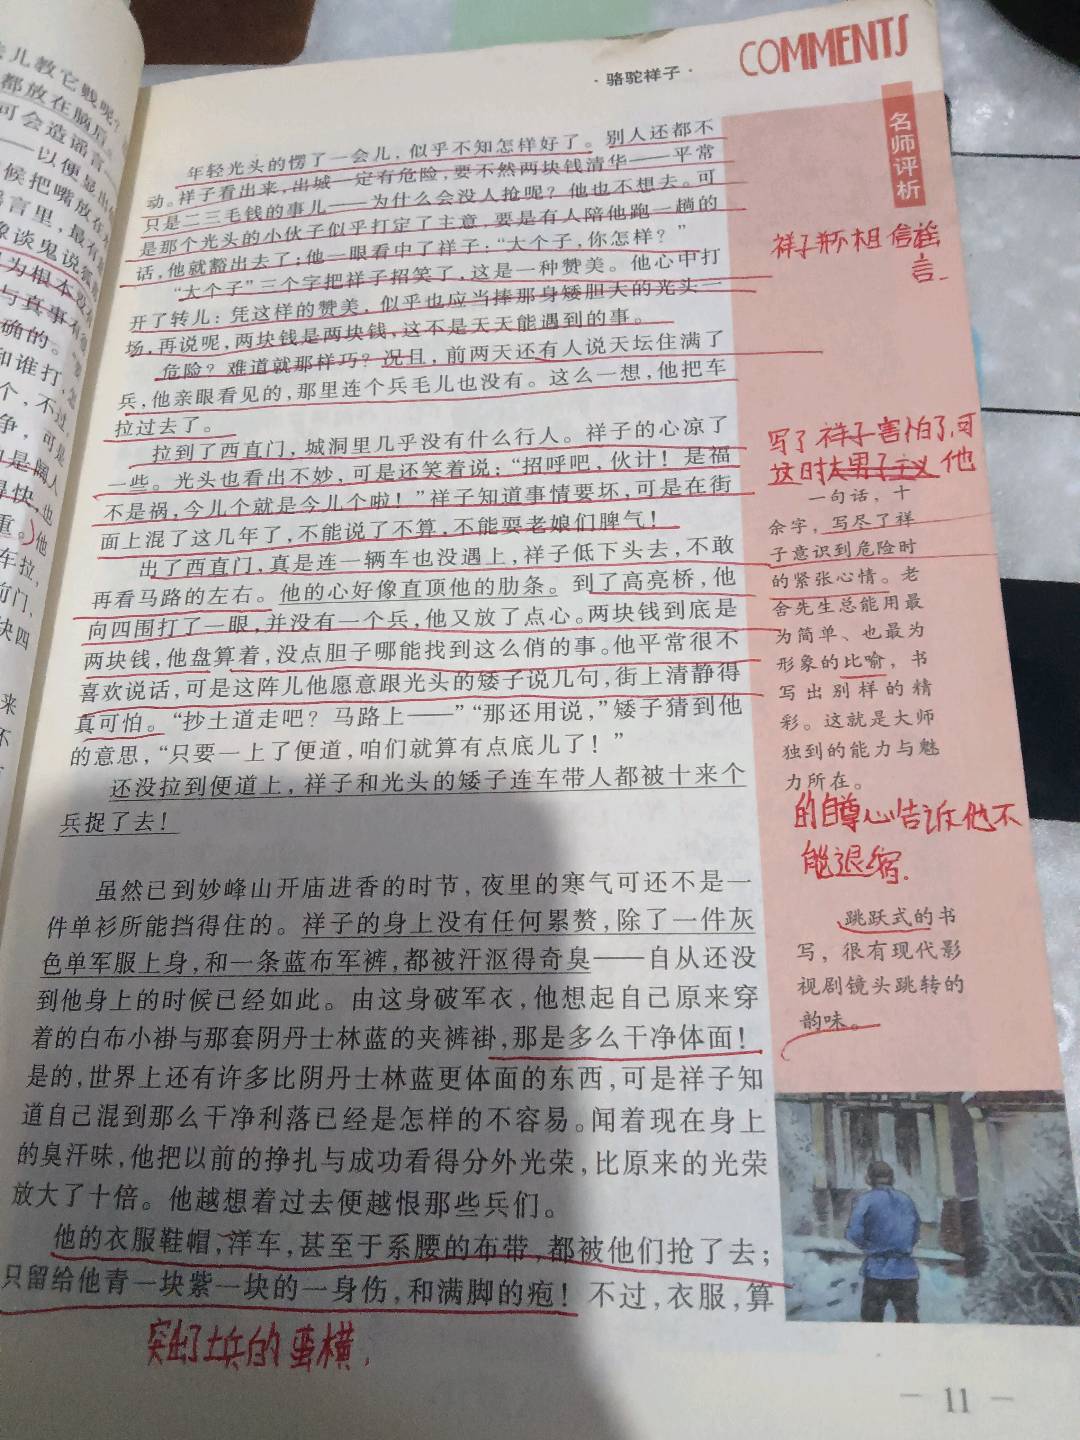 COMMENTS
·骆驼祥子·
名师评析
年轻光头的愣了一会儿，似乎不知怎样好了。别人还都不
动。祥子看出来，出城一定有危险，要不然两块钱清华——平常
只是二三毛钱的事儿——为什么会没人抢呢？他也不想去。可
是那个光头的小伙子似乎打定了主意，要是有人陪他跑一趟的
话，他就豁出去了；他一眼看中了祥子：“大个子，你怎样？”
“大个子”三个字把祥子招笑了，这是一种赞美。他心中打
开了转儿：凭这样的赞美，似乎也应当捧那身矮胆大的光头一
场，再说呢，两块钱是两块钱，这不是天天能遇到的事。
危险？难道就那样巧？况且，前两天还有人说天坛住满了
兵，他亲眼看见的，那里连个兵毛儿也没有。这么一想，他把车
拉过去了。
拉到了西直门，城洞里几乎没有什么行人。祥子的心凉了
一些。光头也看出不妙，可是还笑着说：“招呼吧，伙计！是福
不是祸，今儿个就是今儿个啦！”祥子知道事情要坏，可是在街
面上混了这几年了，不能说了不算，不能耍老娘们脾气！
出了西直门，真是连一辆车也没遇上，祥子低下头去，不敢
再看马路的左右。他的心好像直顶他的肋条。到了高亮桥，他
向四围打了一眼，并没有一个兵，他又放了点心。两块钱到底是
两块钱，他盘算着，没点胆子哪能找到这么俏的事。他平常很不
喜欢说话，可是这阵儿他愿意跟光头的矮子说几句，街上清静得
真可怕。“抄土道走吧？马路上——”“那还用说，”矮子猜到他
的意思，“只要一上了便道，咱们就算有点底儿了！”
还没拉到便道上，祥子和光头的矮子连车带人都被十来个
兵捉了去！
虽然已到妙峰山开庙进香的时节，夜里的寒气可还不是一
件单衫所能挡得住的。祥子的身上没有任何累赘，除了一件灰
色单军服上身，和一条蓝布军裤，都被汗沤得奇臭——自从还没
到他身上的时候已经如此。由这身破军衣，他想起自己原来穿
着的白布小褂与那套阴丹士林蓝的夹裤褂，那是多么干净体面！
是的，世界上还有许多比阴丹士林蓝更体面的东西，可是祥子知
道自己混到那么干净利落已经是怎样的不容易。闻着现在身上
的臭汗味，他把以前的挣扎与成功看得分外光荣，比原来的光荣
放大了十倍。他越想着过去便越恨那些兵们。
他的衣服鞋帽，洋车，甚至于系腰的布带，都被他们抢了去；
只留给他青一块紫一块的一身伤，和满脚的疱！不过，衣服，算
突出了士兵的蛮横，
祥子并不相信谣
言
写了祥子害怕了，可
这时大男子主义他
一句话，十
余字，写尽了祥
子意识到危险时
的紧张心情。老
舍先生总能用最
为简单、也最为
形象的比喻，书
写出别样的精
彩。这就是大师
独到的能力与魅
力所在。
的自尊心告诉他不
能退缩.
跳跃式的书
写，很有现代影
视剧镜头跳转的
韵味。
— 11 —